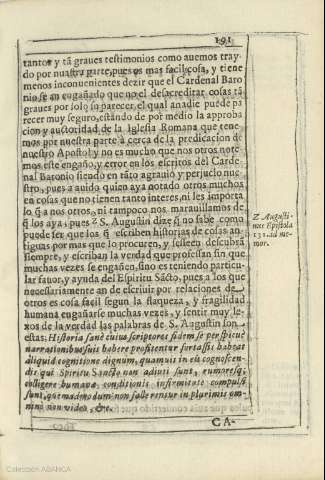 191
tantos y tã graues testimonios como auemos tray-
do por nuestra parte, pues es mas facil cosa, y tiene
menos inconuenientes dezir que el Cardenal Baro
nio se en engañado que no el desacreditar cosas tã
graues por solo su parecer, el qual a nadie puede pa
recer muy seguro, estando de por medio la approba
cion y auctoridad de la Iglesia Romana que tene
mos por nuestra parte à cerca de la predicacion de
nuestro Apostol: y no es mucho que nos otros note
mos este engaño, y error en los escritos del Carde-
nal Baronio siendo en tãto agrauio y perjucio nue-
stro, pues a auido quien aya notado otros muchos
en cosas que no tienen tanto interes, ni les importa
lo q̃ a nos otros, ni tampoco nos marauillamos de
q̃ los aya, pues Z S. Augustin dize q̃ no sabe como
puede ser que los q̃ escriben historias de cosas an-
tiguas por mas que lo procuren, y desseen descubrã
siempre, y escriban la verdad que professan sin que
muchas vezes se engañen, sino es teniendo particu-
lar fauor, y ayuda del Espiritu Sãcto, pues a los que
necessariamente an de escriuir por relaciones de
otros es cosa facil segun la flaqueza, y fragilidad
humana engañarse muchas vezes, y sentir muy le-
xos de la verdad las palabras de S. Augustin son
estas: Historia sanè cuius scriptores fidem se perspicuè
narrationibus suis habere profitentur fortassis habeat
aliquid cognitione dignum, quamuis in eis cognoscen-
dis qui Spiritu Sancto non adiuti sunt, rumoresq;
colligere humana conditionis infirmitate compulsi
sunt, quemadmodum non fallerentur in plurimis om-
ninò non video, &c.
CA-
Z Augusti-
nus Epistola
131. ad me-
mor.
Colección ABANCA